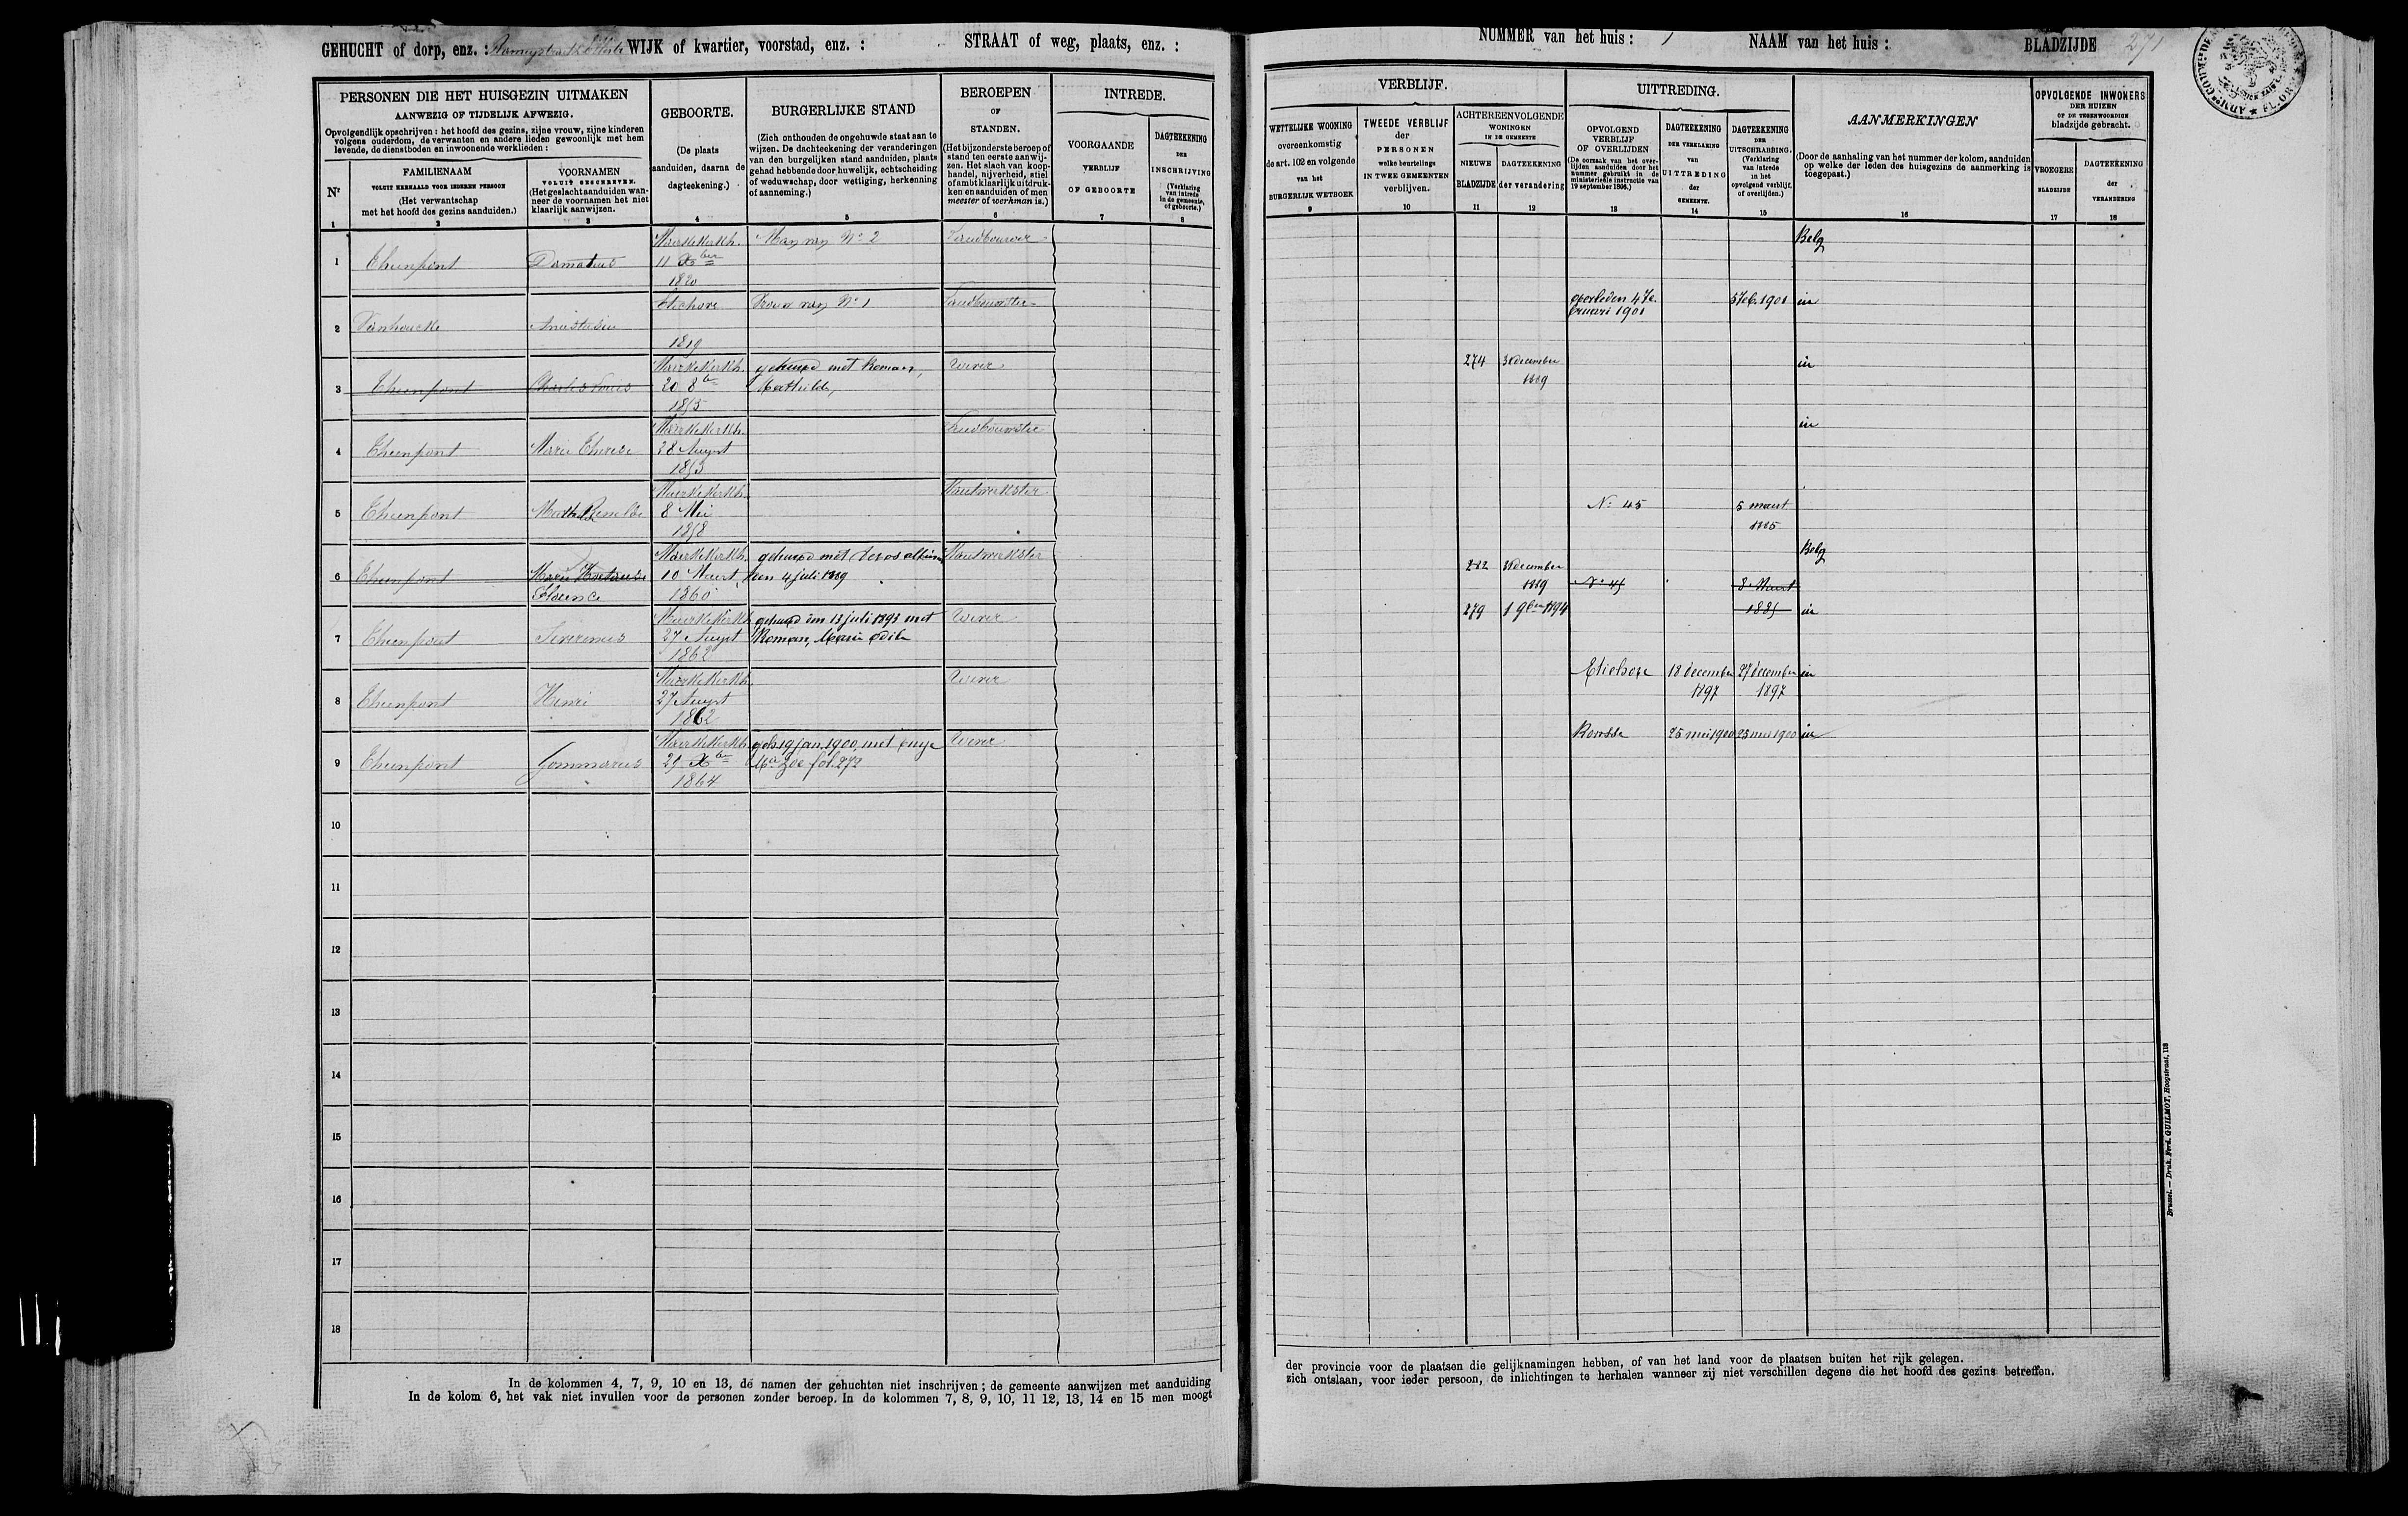 GEHUCHT of dorp, enz. :
WIJK of kwartier, voorstad, enz. :
STRAAT of weg, plaats, enz. :
PERSONEN DIE HET HUISGEZIN UITMAKEN
AANWEZIG OF TIJDELIJK AFWEZIG.
Opvolgendlijk opschrijven : het hoofd des gezins, zijne vrouw, zijne kinderen
volgens ouderdom, de verwanten en andere lieden gewoonlijk met hem
levende, de dienstboden en inwoonende werklieden :
Nr
FAMILIENAAM
VOLUIT HERHAALD VOOR IEDEREN PERSOON
(Het verwantschap
met het hoofd des gezins aanduiden.)
VOORNAMEN
VOLUIT GESCHREVEN.
(Het geslacht aanduiden wan-
neer de voornamen het niet
klaarlijk aanwijzen.
GEBOORTE.
(De plaats
aanduiden, daarna de
dagteekening.)
BURGERLIJKE STAND
(Zich onthouden de ongehuwde staat aan te
wijzen. De dachteekening der veranderingen
van den burgelijken stand aanduiden, plaats
gehad hebbende door huwelijk, echtscheiding
of weduwschap, door wettiging, herkenning
of aanneming.)
BEROEPEN
OF
STANDEN.
(Het bijzonderste beroep of
stand ten eerste aanwij-
zen. Het slach van koop-
handel, nijverheid, stiel
of ambt klaarlijk uitdruk-
ken en aanduiden of men
meester of werkman is.)
INTREDE.
VOORGAANDE
VERBLIJF
OF GEBOORTE
DAGTEEKENING
DER
INSCHRIJVING
(Verklaring
van intrede
in de gemeente,
of geboorte.)
1 2 3 4 5 6 7 8
1 Theenpont Damatus Maerkekerkh. 11 Xber 1820 Man van No 2 Landbouwer
2 Vanhoucke Anastasia Etichove 1819 Vrouw van No 1 Landbouwster
3 Theenpont Charles Louis Maerkekerkh. 20 8br 1855 gehuwd met Roman, Mathilde, Wever
4 Theenpont Marie Therese Maerkekerkh. 28 Augst 1853 Landbouwster
5 Theenpont Maerkekerkh. 8 Mei 1858
6 Theenpont Marie Florence Maerkekerkh. 10 Maert 1860 gehuwd met den 4 juli 1889
7 Theenpont Severinus Maerkekerkh. 27 Augst 1862 gehuwd den 13 juli 1893 met Roman, Marie Odile Wever
8 Theenpont Henri Maerkekerkh. 27 Augst 1862 Wever
9 Theenpont Gommarus Maerkekerkh. 29 Xbr 1864 geh. 19 jan. 1900, met Ma Zoe fol. 272 Wever
10
11
12
13
14
15
16
17
18
In de kolommen 4, 7, 9, 10 en 13, de namen der gehuchten niet inschrijven ; de gemeente aanwijzen met aanduiding
In de kolom 6, het vak niet invullen voor de personen zonder beroep. In de kolommen 7, 8, 9, 10, 11 12, 13, 14 en 15 men moogt
NUMMER van het huis : 1
NAAM van het huis :
BLADZIJDE 271
VERBLIJF.
WETTELIJKE WOONING
overeenkomstig
de art. 102 en volgende
van het
BURGERLIJK WETBOEK
TWEEDE VERBLIJF
der
PERSONEN
welke beurtelings
IN TWEE GEMEENTEN
verblijven.
ACHTEREENVOLGENDE
WONINGEN
IN DE GEMEENTE
NIEUWE
BLADZIJDE
DAGTEEKENING
der verandering
UITTREDING.
OPVOLGEND
VERBLIJF
OF OVERLIJDEN
(De oorzaak van het over-
lijden aanduiden door het
nummer gebruikt in de
ministerieële instructie van
19 september 1866.)
DAGTEEKENING
DER VERKLARING
van
UITTREDING
der
GEMEENTE.
DAGTEEKENING
DER
UITSCHRABBING.
(Verklaring
van intrede
in het
opvolgend verblijf,
of overlijden.)
AANMERKINGEN
(Door de aanhaling van het nummer der kolom, aanduiden
op welke der leden des huisgezins de aanmerking is
toegepast.)
OPVOLGENDE INWONERS
DER HUIZEN
OF DE TEGENWOORDIGE
bladzijde gebracht.
VROEGERE
BLADZIJDE
DAGTEEKENING
der
VERANDERING
9 10 11 12 13 14 15 16 17 18
Belg
overleden 4 Fe- 5 Feb. 1901 in
bruari 1901
274 3 december in
1889
in
No 45 5 maart
1885
Belg
282 31 december
1889 No 45 8 Maert
279 1 9ber 1894 1885 in
Etichove 18 december 27 december in
1897 1897
Ronsse 25 mei 1900 25 mei 1900 in
der provincie voor de plaatsen die gelijknamingen hebben, of van het land voor de plaatsen buiten het rijk gelegen.
zich ontslaan, voor ieder persoon, de inlichtingen te herhalen wanneer zij niet verschillen degene die het hoofd des gezins betreffen.
Brussel. — Druk. Ferd. GUILMOT, Hoogstraat, 118